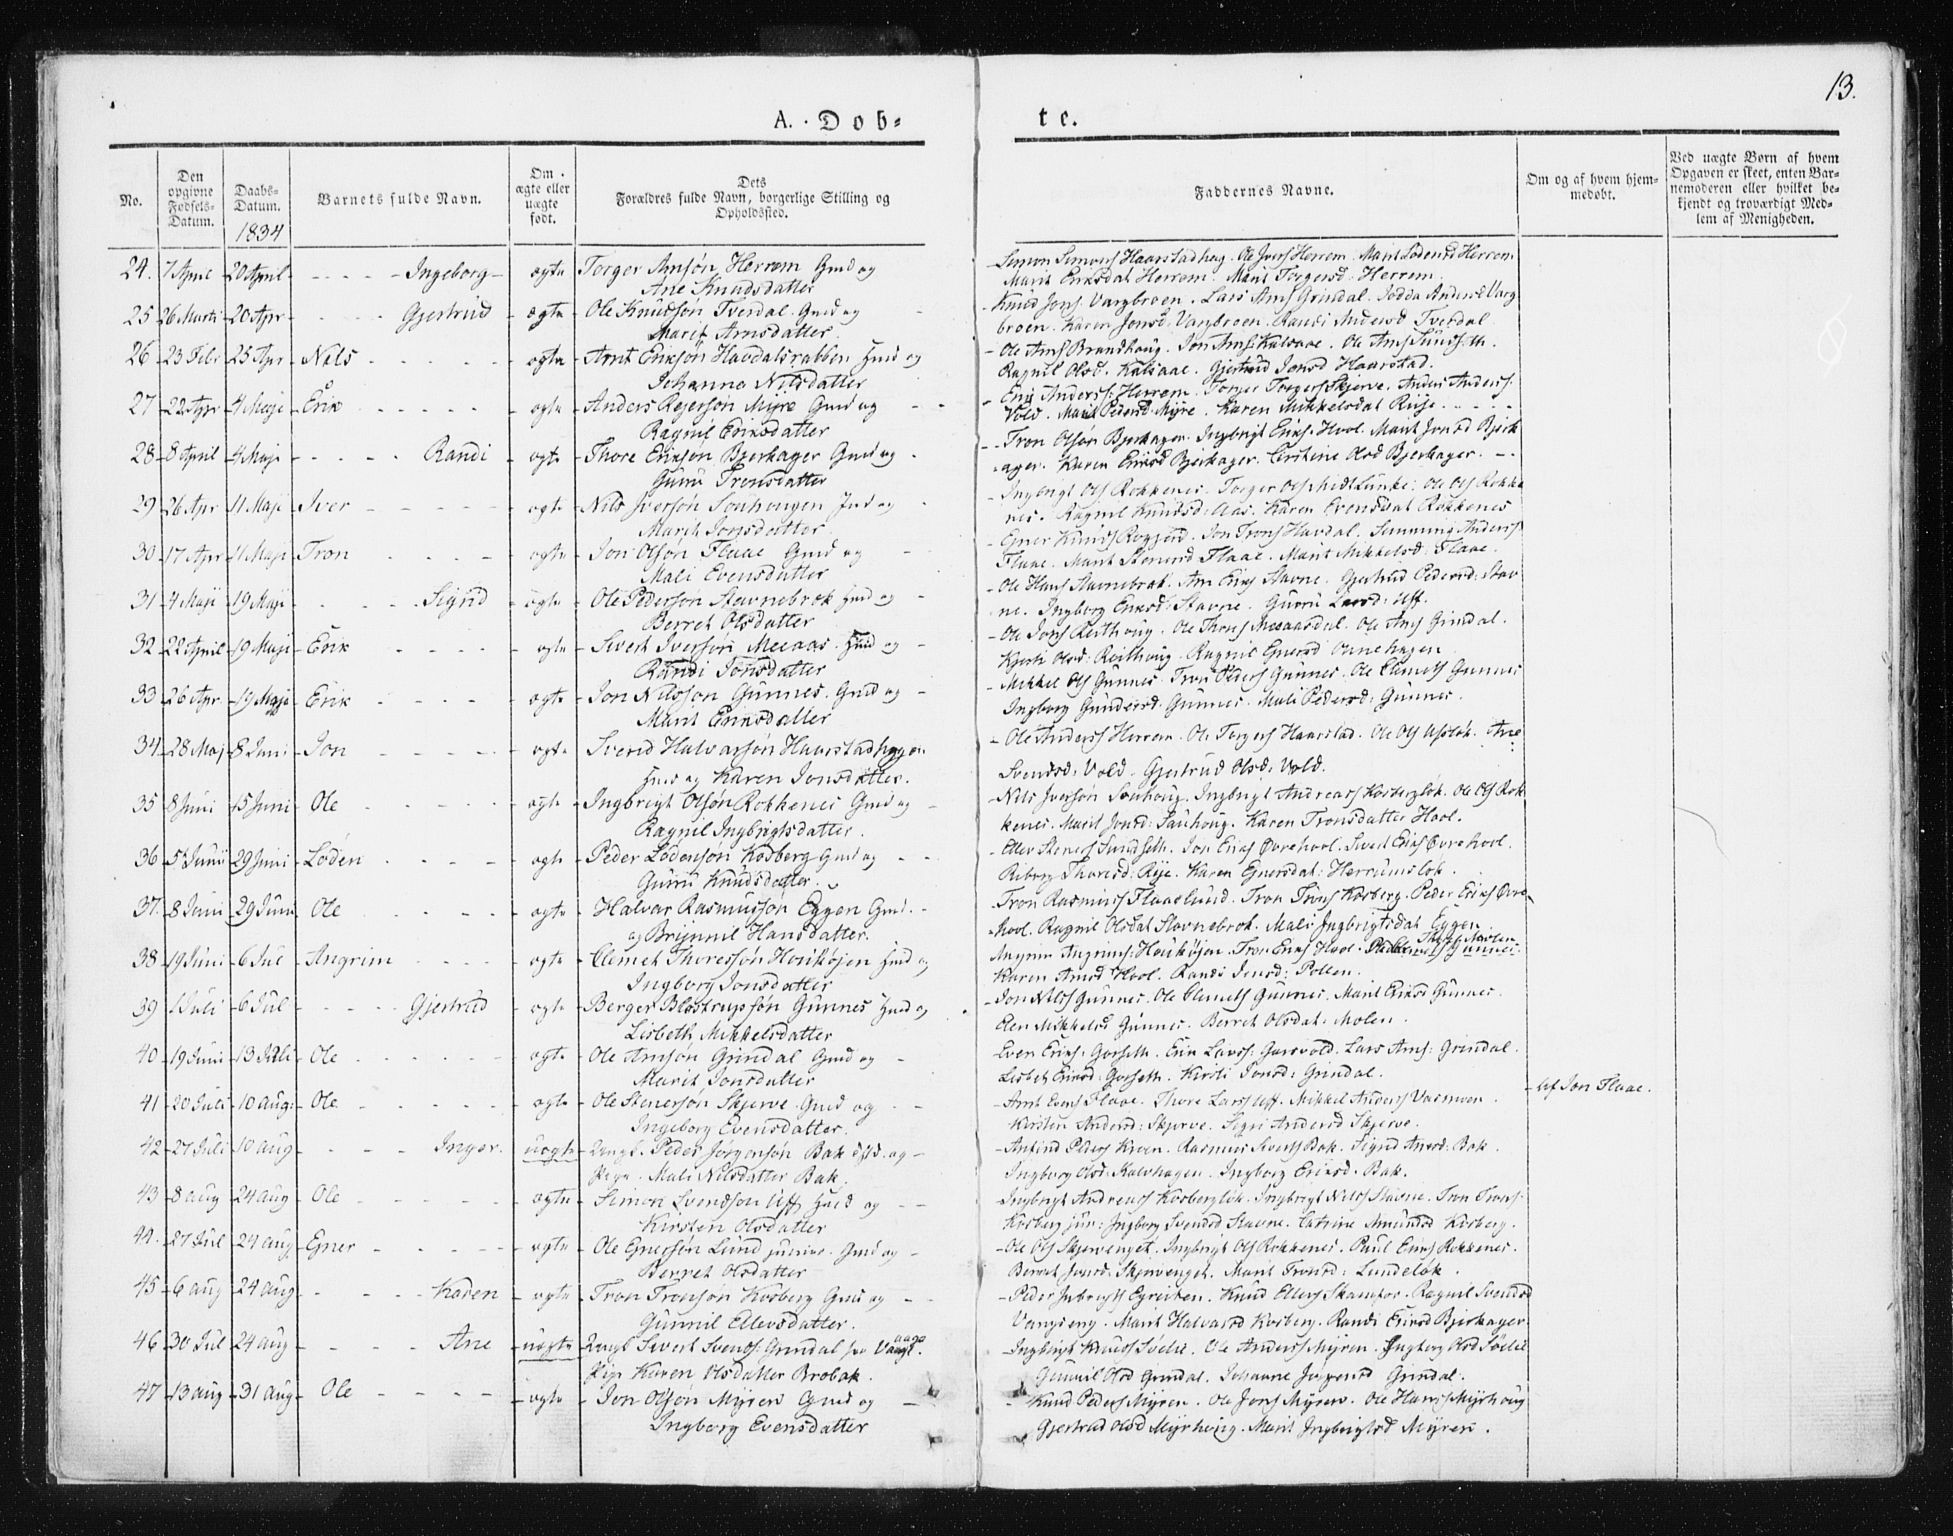 13.
A. Døb-
te.
No.
Den opgivne Fødsels-Datum.
Daabs-Datum.
1834
Barnets fulde Navn.
Om ægte eller uægte født.
Dets Forældres fulde Navn, borgerlige Stilling og Opholdssted.
Faddernes Navne.
Om og af hvem hjem-medøbt.
Ved uægte Børn af hvem Opgaven er skeet, enten Bar-nemoderen eller hvilket be-kjendt og troværdigt Med-lem af Menigheden.
24. 7 April 20 April Ingeborg ægte Torger Arnsøn Herrem Gmd og
Ane Knudsdatter
Marit Eriksdat Herrem. Marit Torgersd: Herrem.
25 26 Marti 20 Apr Gjertrud ægte Ole Knudsøn Tverdal Gmd og
Marit Arnsdatter
Knud Jons. Vangbroen. Lars Arns Grindal.
broen. Karen Jonsd. Vangbroen. Randi Andersd Tverdal
26 23 Febr 25 Apr Nils ægte Arnt Eriksøn Havdalsrabben Hmd og
Johanna Nilsdatter
Ole Arns Brandhoug. Jon Arns Kalsaae. Ole Arns Sundseth.
Ragnil Olsd. Kalsaae. Gjertrud Jonsd Haarstad.
27 22 Apr 4 Maji Erik ægte Anders Rejersøn Myre Gmd og
Ragnil Eriksdatter
Eric Anderss: Herrem. Torger Torgers Skjerve. Anders Anderss:
Vold. Marit Pedersd. Myre. Karen Mikkelsdat Riise
28 8 April 4 Maji Randi ægte Thore Eriksøn Bjerkager Gmd og
Guru Tronsdatter
Tron Olsøn Bjerkager. Ingbrigt Eriks. Hool. Marit Jonsd Bjerk
ager. Karen Eriksd Bjerkager. Kirstine Olsd Bjerkager.
29 26 Apr 11 Maji Iver ægte Nils Iversøn Souhougen Ind og
Marit Jonsdatter
Ingbrigt Ols Rokkenes. Torger Ols Midtlunke. Ole Ols Rokke
nes. Ragnil Knudsd: Aas. Karen Evensdat Rokkenes
30 17 Apr 11 Maji Tron ægte Jon Olsøn Flaae Gmd og
Mali Evensdatter
Flaae. Marit Stenersd Flaae. Marit Mikkelsd. Flaae.
31 4 Maji 19 Maji Sigrid ægte Ole Pedersøn Stavnebrok Hmd og
Berret Olsdatter
Ole Hans Stavnebrok. Arn Eriks Stavne. Gjertrud Pedersd: Stav
ne. Ingborg Eriksd: Stavne. Guru Larsd: Uff.
32 22 April 19 Maji Erik ægte Sivert Iversøn Meeaas Hmd og
Randi Jonsdatter
Ole Jons Reithoug. Ole Thores Meeaasdal. Ole Arns Grindal.
Kjersti Olsd: Reithoug. Ragnil Ejnersd
33 26 Apr 19 Maji Erik ægte Jon Nilssøn Gunnes. Gmd og
Marit Eriksdatter
Mikkel Ols Gunnes. Tron Gunnes. Ole Clemets Gunnes
Ingborg Gundersd: Gunnes. Mali Pedersd: Gunnes.
34 28 Maj 8 Juni Jon ægte Svend Halvarsøn Haarstadhyggen
Hmd og Karen Jonsdatter.
Ole Anders Herrem. Ole Torgers Haarstad. Ole Ols Uvsløk. Ane
Svendsd: Vold. Gjertrud Olsd: Vold.
35 8 Juni 15 Juni Ole ægte Ingbrigt Olsøn Rokkenes Gmd og
Ragnil Ingbrigtsdatter.
Nils Iversøn Souhoug. Ingbrigt Andreass Kosbergløk. Ole Ols Rok
kenes. Marit Jonsd: Sauhoug. Karen Tronsdatter Hool.
36 5 Junii 29 Juni Loden ægte Peder Lodensøn Kosberg Gmd og
Guru Knudsdatter.
Eller Steners Sundseth. Jon Eriks Øvrehool. Sivert Eriks Øvrehool.
Riborg Thoresd: Rise. Karen Ejnersdat: Herremsløk.
37. 8 Juni 29 Juni Ole ægte Halvar Rasmussøn Eggen Gmd.
og Brynnil Hansdatter.
Tron Rasmuss Flaaelund. Tron Trons Kosberg. Peder Eriks Øvre
hool. Ragnil Olsdat Stavnebrok. Mali Ingbrigtsdat Eggen
38 19 Juni 6 Jul Angrim ægte Clemet Thoressøn Houkøjen Hmd og
Ingborg Jonsdatter
Karen Arnsd Hool. Randi Jonsd: Pollen.
39 1 Juli 6 Jul Gjertrud ægte Berger Blostrupsøn Gunnes Hmd og
Lisbeth Mikkelsdatter
Jon Nils Gunnes. Ole Clemets Gunnes. Marit Eriksd Gunnes.
Elen Mikkelsd Gunnes. Berret Olsdat. Molen.
40 19 Juni 13 Juli Ole ægte Ole Arnsøn Grindal Gmd og
Marit Jonsdatter
Even Eriks. Gorseth. Erik Larss: Gorsvold. Lars Arns: Grindal.
Lisbet Eriksd: Gorseth. Kirsti Jonsd: Grindal.
41 20 Juli 10 aug: Ole ægte Ole Stenersøn Skjerve Gmd og
Ingeborg Evensdatter.
Arnt Evens Flaae. Thore Lars Uff. Mikkel Anders Vasmoen.
Kirsten Andersd: Skjerve. Sigri Andersd Skjerve.
af Jon Flaae.
42 27 Juli 10 aug Inger. uægte Ungk. Peder Jørgensøn Bak og
Pige. Mali Nilsdatter Bak.
Anfind Peders Kroen. Rasmus Siverts Bak. Sigrid Arnsd: Bak.
Ingborg Olsd. Kalvhagen. Ingborg Eriksd. Bak.
43 8 aug 24 aug Ole ægte Simon Svendsøn Uff Hmd og
Kirsten Olsdatter
Ingbrigt Andreass Kosbergløk. Ingbrigt Nils Stavne. Tron Trons:
Kosberg jun: Ingborg Svendsd Stavne. Catrine Amundsd Kosberg.
44. 27 Jul 24 aug Ejner ægte Ole Ejnersøn Lund junior. Gmd og
Berret Olsdatter
Ole Ols Skjervenget. Ingbrigt Ols Rokkenes. Paul Eriks Rokkenes.
Berret Jonsd: Skjervenget. Marit Tronsd: Lundeløk.
45 6 aug 24 aug Karen ægte Tron Tronsøn Kosberg Gmd og
Gunnil Ellevsdatter.
Peder Inbrigts Eyreiten. Knud Ellevs Skamfer. Ragnil Svendsd
Vangseng. Marit Halvarsd Kosberg. Randi Eriksd Bjerkager.
46 30 Jul 24 aug Ane uægte Ungk Sivert Svends: Grindal
Pige Karen Olsdatter Brobak.
Ingbrigt Knuds Solie. Ole Anders Myren. Ingborg Olsd Solie
Gunnil Olsd Grindal. Johanne Grindal.
47 13 aug 31 aug Ole ægte Jon Olsøn Myren Gmd og
Ingborg Evensdatter
Knud Peders Myren. Ole Jons Myren. Ole Hans Myrhoug
Gjertrud Olsd Myrhoug. Marit Ingbrigtsd Myren.